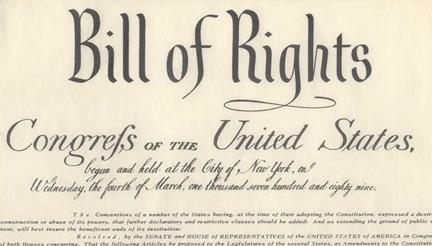 Bill of Rights
Congreſs OF THE United States,
begun and held at the City of New York, on
Wednesday, the fourth of March, one thousand seven hundred and eighty nine.
The Conventions of a number of the States having, at the time of their adopting the Constitution, expressed a desire
construction or abuse of its powers, that further declaratory and restrictive clauses should be added: And as extending the ground of public
will best insure the beneficent ends of its institution:
Resolved, by the SENATE and HOUSE of REPRESENTATIVES of the UNITED STATES of AMERICA in Congre
of both Houses concurring, That the following Articles be proposed to the Legislatures of the several States, as amendments to the Constitution